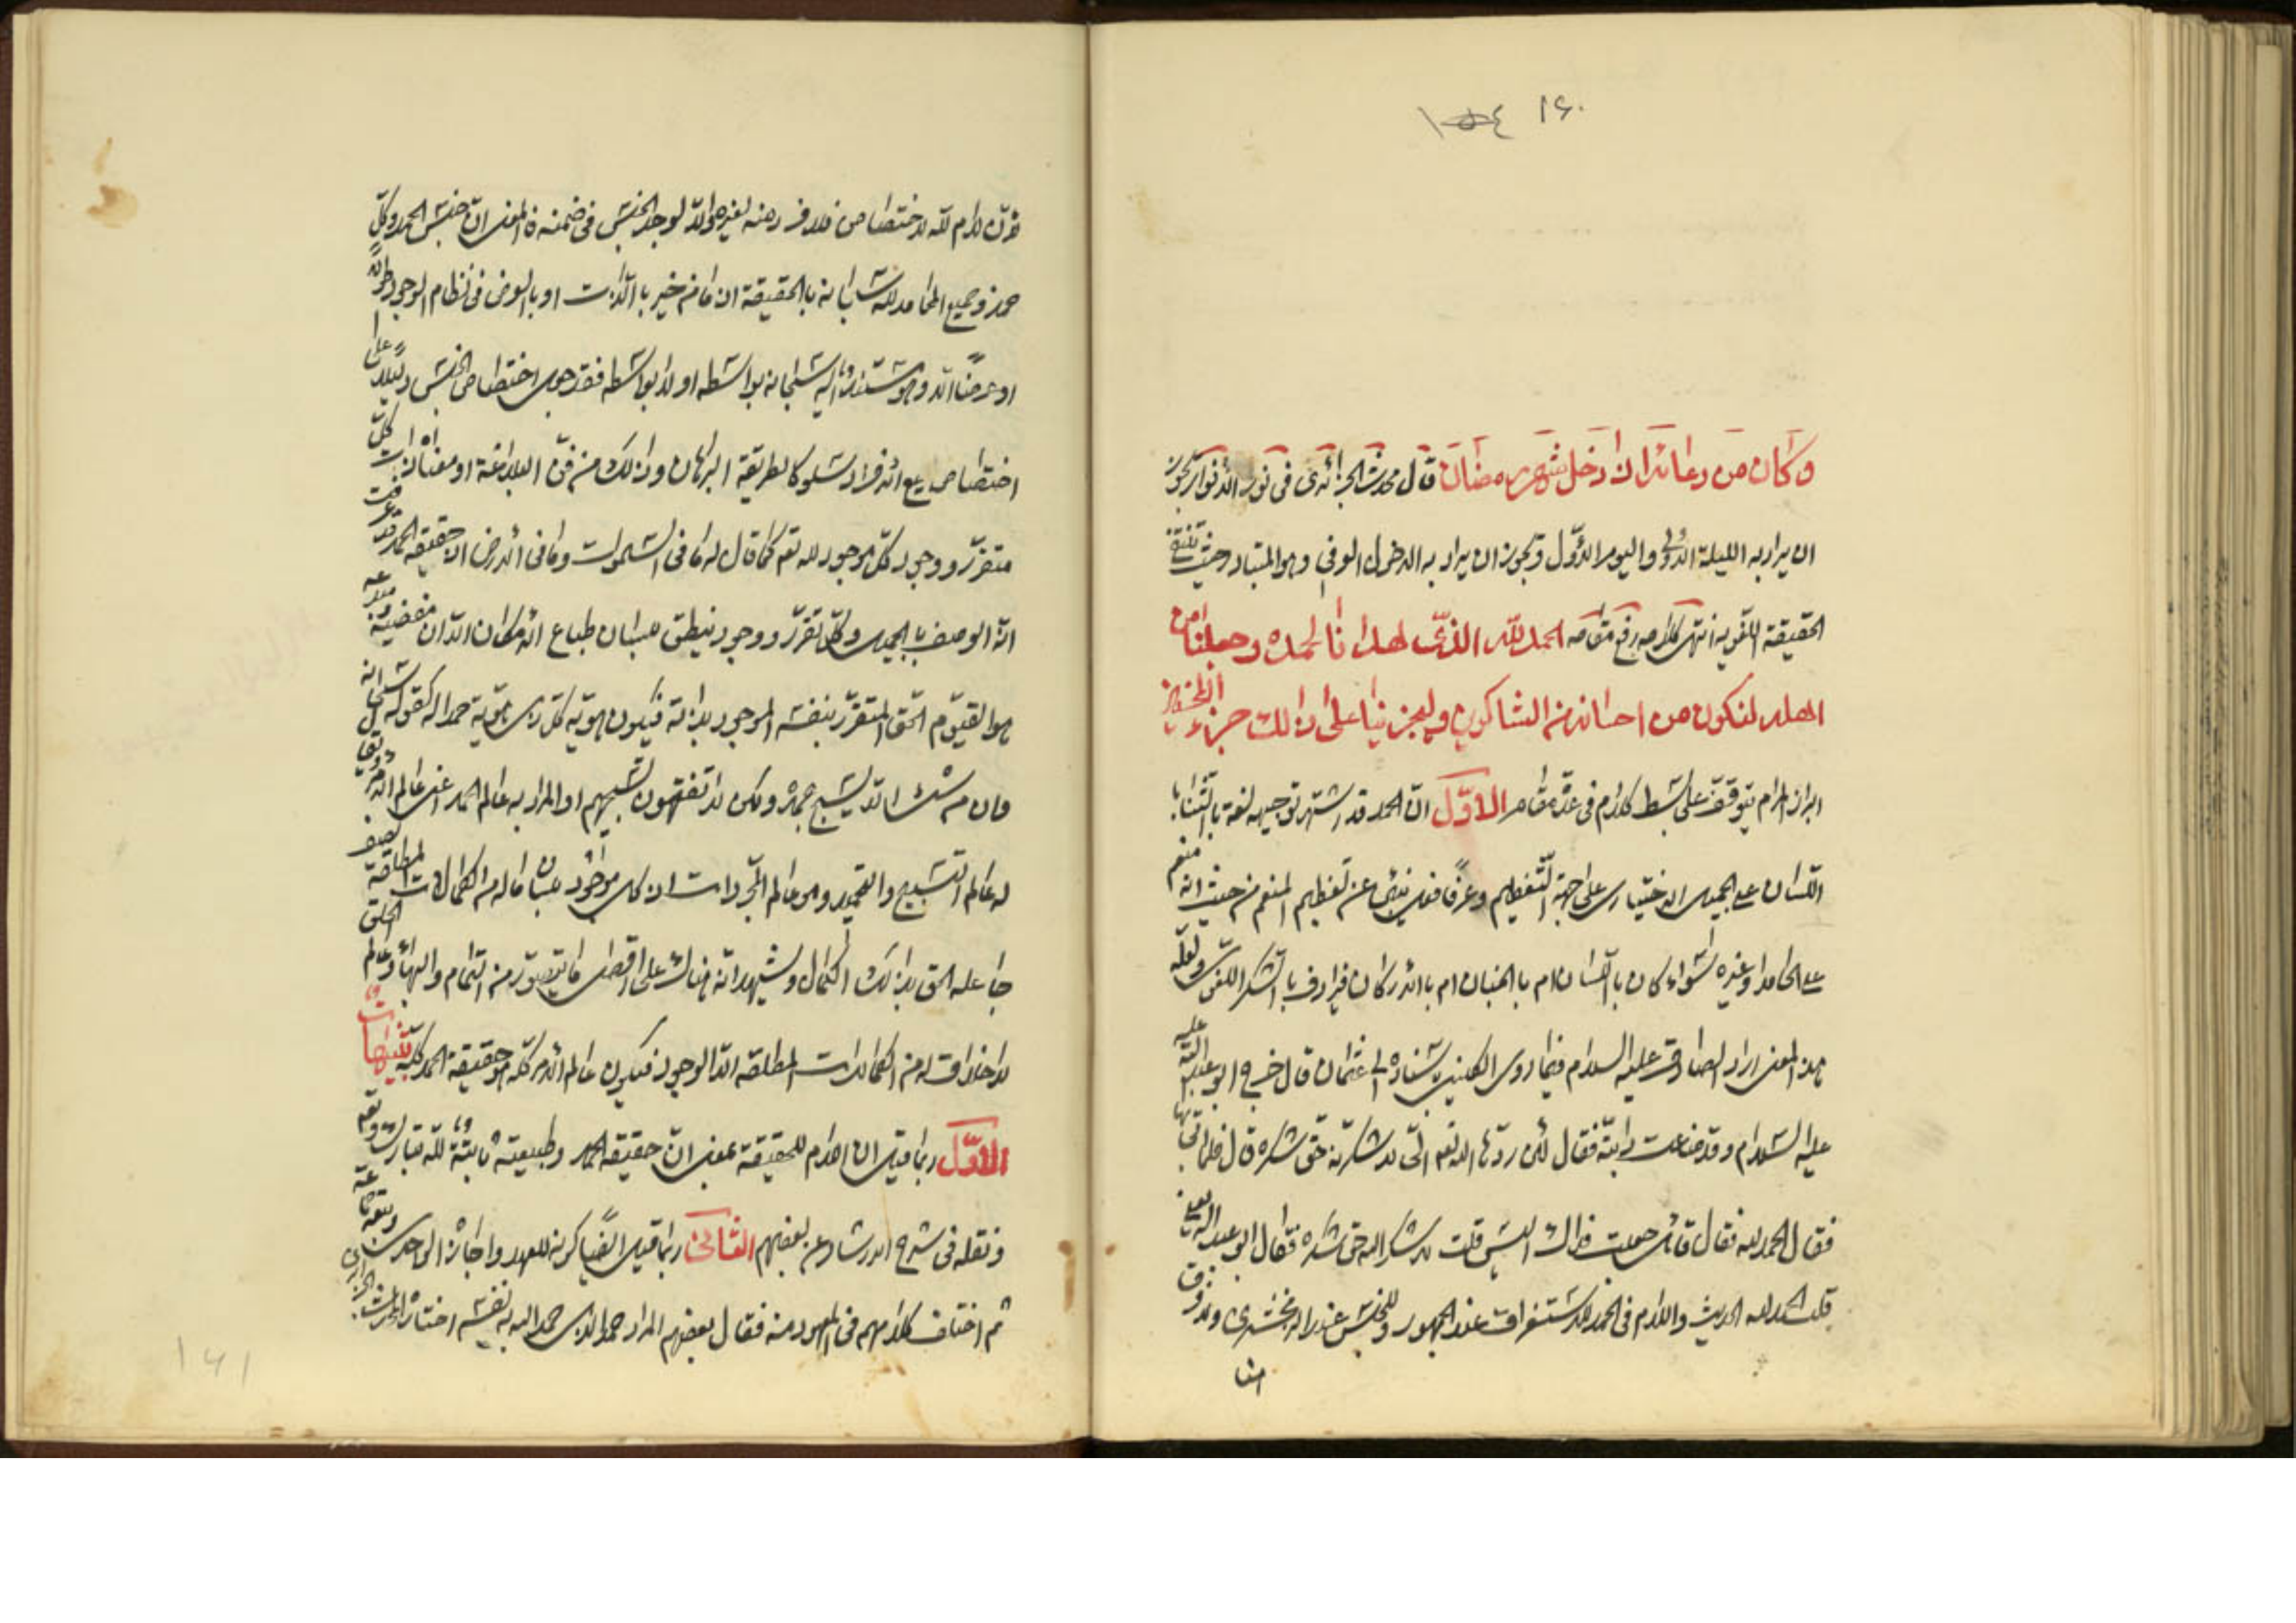 ١٥٤ ١٦٠
وكان من دعائه اذا دخل شهر رمضان قال المحدث الجزائري في نور الأنوار يجوز
ان يراد به الليلة الاولى واليوم الاول ويجوز ان يراد به الدخول الوفي وهو المتبادر حيث تنتفي
الحقيقة اللغوية انتهى كلامه رفع مقامه الحمد لله الذي هدانا لحمده وجعلنا من
اهله لنكون من احسانه من الشاكرين وليجزينا على ذلك جزاء المحسنين
ابراز المرام يتوقف على بسط كلام في عدة مقام الاول ان الحمد قد اشتهر توجيهه لغة بالثناء
باللسان على الجميل الاختياري على جهة التعظيم وعرفا فعل ينبئ عن تعظيم المنعم من حيث انه منعم
على الحامد او غيره سواء كان باللسان ام بالجنان ام بالاركان فيرادف الشكر اللغوي ولعله
هذا المعنى اراد الصادق عليه السلام فيما روى الكليني باسناده الى عثمان قال خرج ابو عبد الله عليه
عليه السلام وقد ضاعت دابته فقال لئن ردها الله تعالى الي لاشكرنه حق شكره قال فلما اتي بها
فقال الحمد لله فقال قائل جعلت فداك اليس قلت لاشكرن الله حق شكره فقال ابو عبد الله
قلت الحمد لله الحديث واللام في الحمد للاستغراق عند الجمهور وللجنس عند الزمخشري ولا فرق
هنا
لأن لام لله للاختصاص فلا فرد منه لغيره والا لوجد الجنس في ضمنه فالمعنى ان جنس الحمد وكل
حمد وجميع المحامد لله سبحانه بالحقيقة اذ ما من خير بالذات او بالعرض في نظام الوجود طولا
او عرضا الا وهو مستند اليه سبحانه بواسطة او لا بواسطة فقد جعل اختصاص الجنس دليلا على
اختصاص جميع الافراد سلوكا لطريقة البرهان وذلك من فن البلاغة او معناه ان كل
متقرر ووجود كل موجود لله تعم كما قال له ما في السموات وما في الارض اذ حقيقة الحمد قد عرفت
انه الوصف بالجميل وكل تقرر ووجود ينطق بلسان طباع الامكان الا ان مفيضه ومبدعه
هو القيوم الحق المتقرر بنفسه الموجود بذاته فيكون هوية كل ذي هوية حمدا له كقوله سبحانه
وان من شيء الا يسبح بحمده ولكن لا تفقهون تسبيحهم او المراد به عالم الحمد اعني عالم الامر
له عالم التسبيح والتحميد وهو عالم المجردات اذ كل موجود بلسان ما له من الكمالات المطلقة يصف
جاعله الحق بذلك الكمال ويشهد انه هناك على اقصى ما يتصور من التمام والبهاء وعالم الخلق
لا خلاق له من الكمالات المطلقة الا الوجود فيكون عالم الامر كله هو حقيقة الحمد كله تنبيهات
الاول ربما قيل ان اللام للحقيقة بمعنى ان حقيقة الحمد وطبيعته ثابتة لله تبارك وتعم
ونقله في شرح الارشاد عن بعضهم الثاني ربما قيل ايضا كونه للعهد واجازه الواحدي وتبعه جماعة
ثم اختلف كلامهم في المعهود منه فقال بعضهم المراد حمدا لذي حمد الله به نفسه اختاره المحدث الجزائري
١٦١